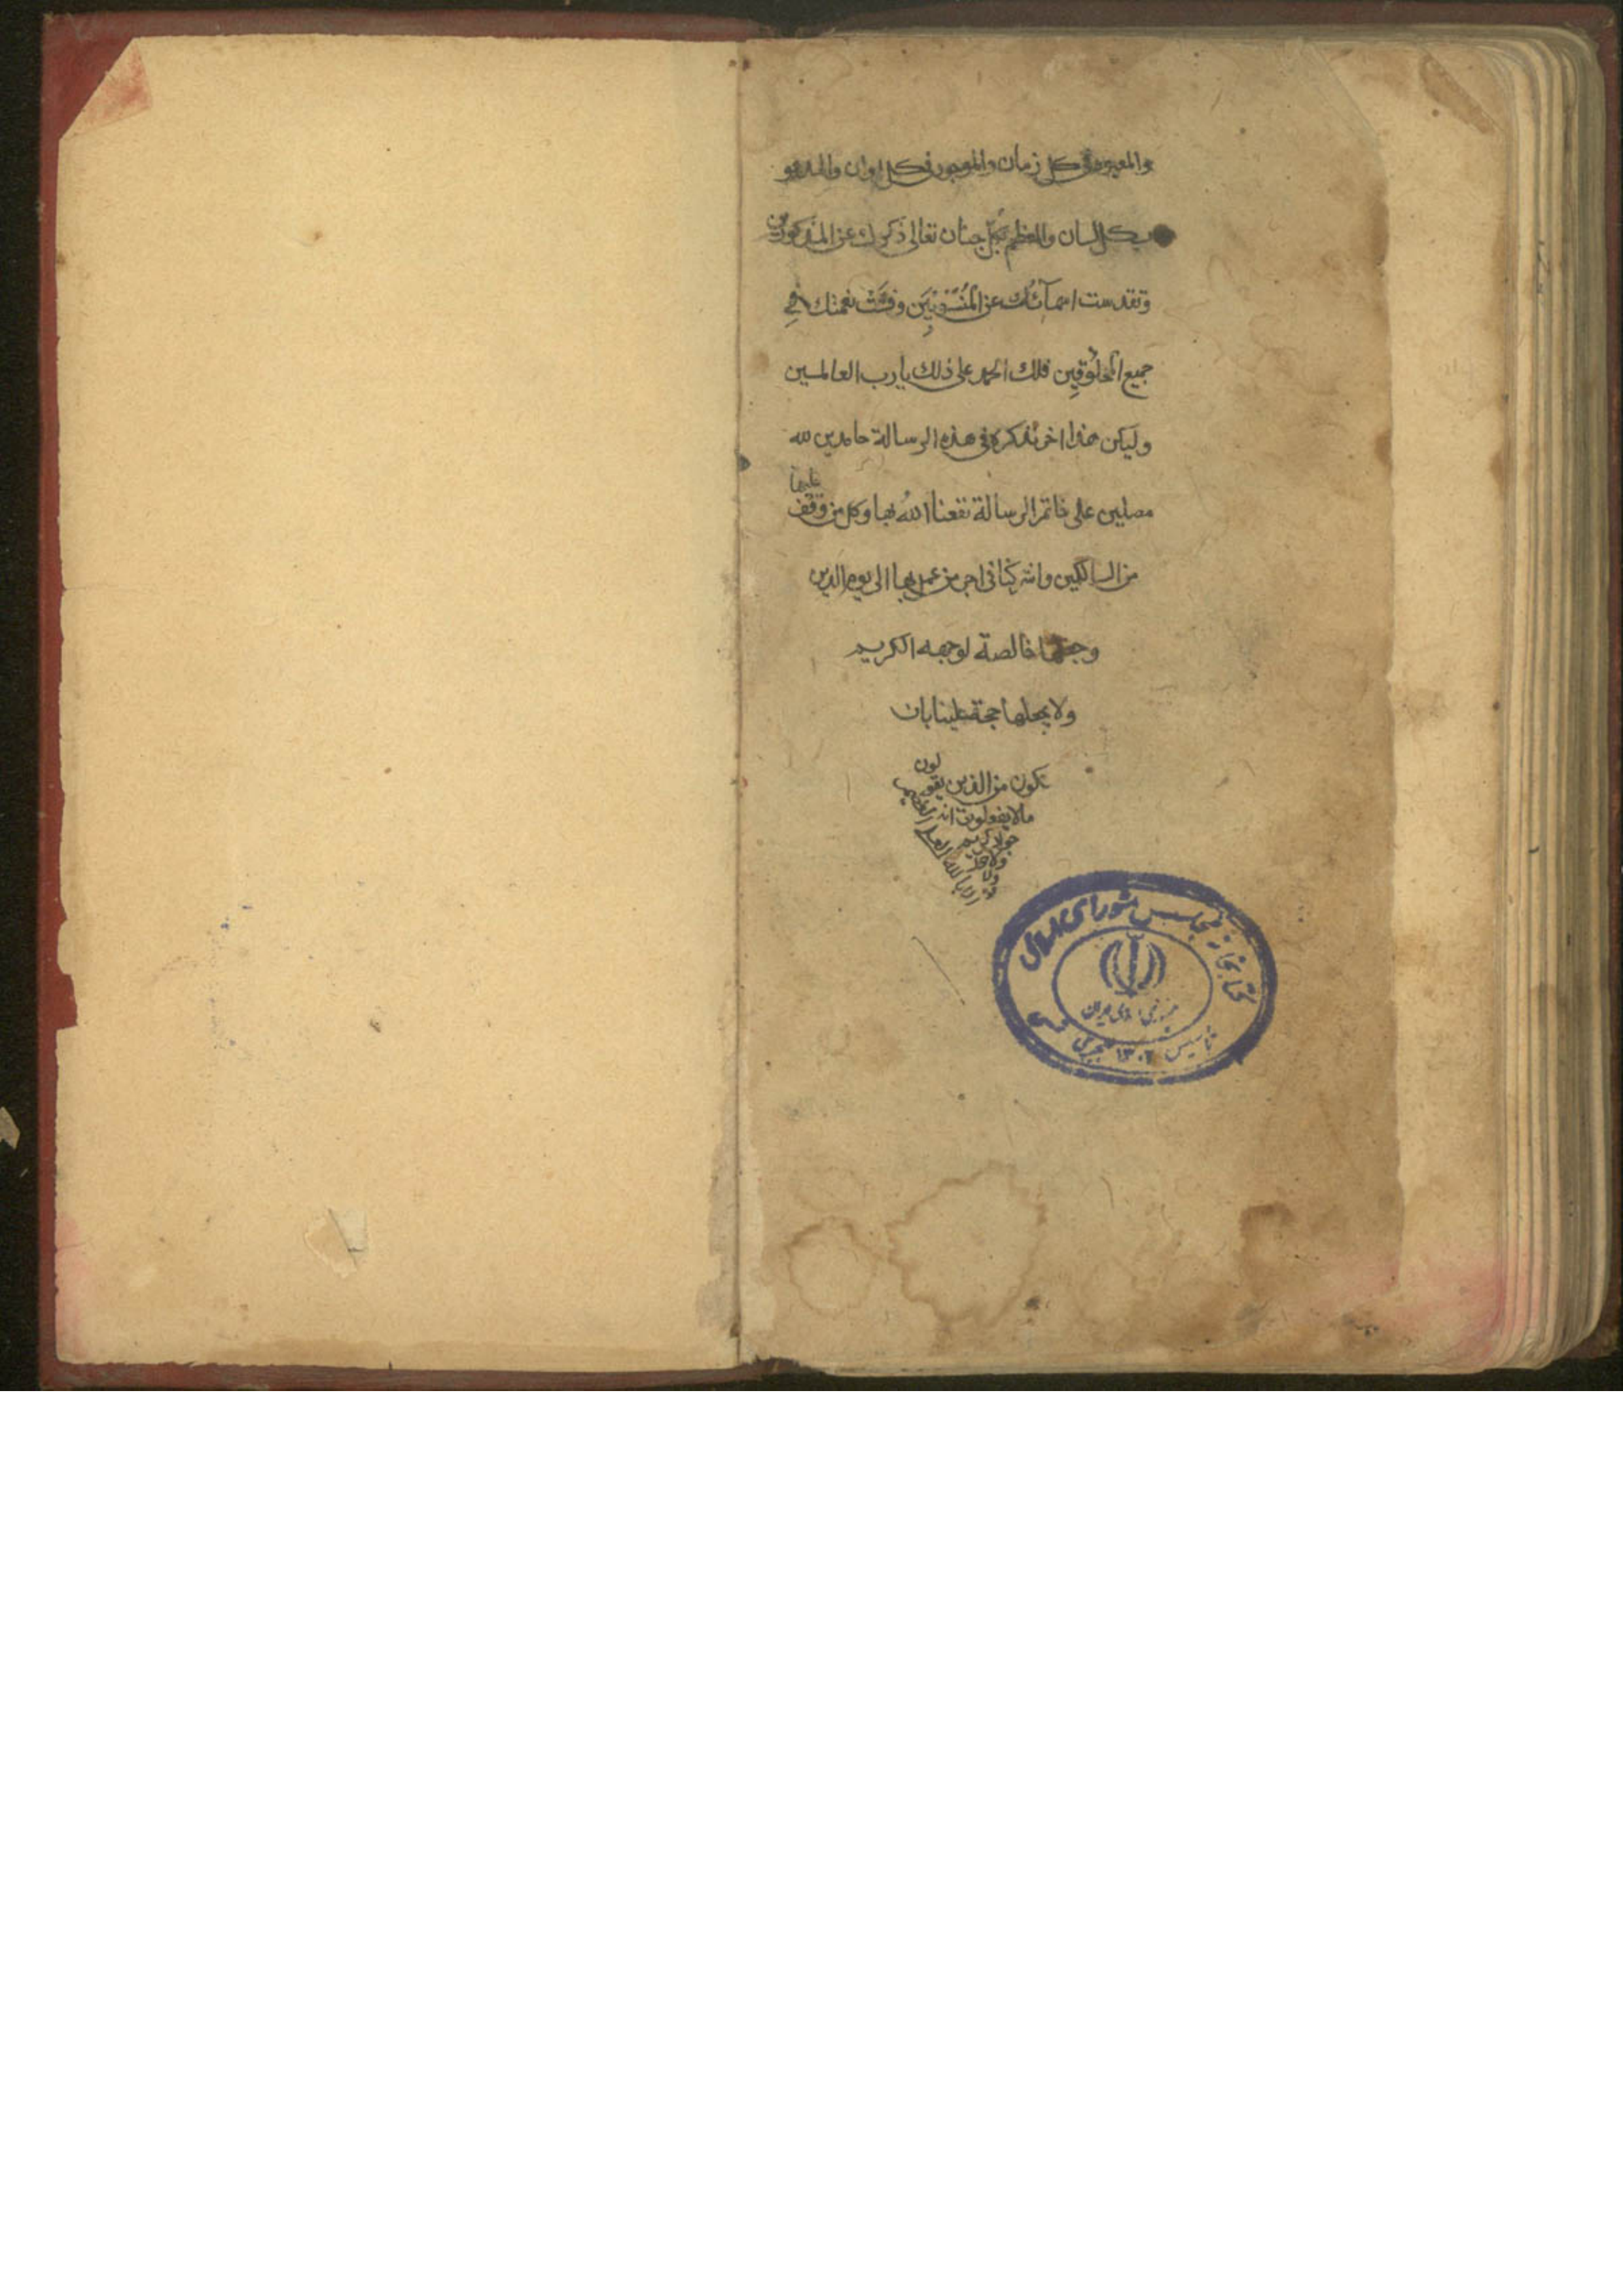 والمعبود في كل زمان والموجود في كل اوان والمدعو
بكل لسان والمعظم بكل جنان تعالى ذكرك عن المذكورين
وتقدست اسمآئك عن المنسوبين وفشت نعمتك في
جميع المخلوقين فلك الحمد على ذلك يا رب العالمين
وليكن هذا اخر نذكره في هذه الرسالة حامدين لله
مصلين على خاتم الرسالة نفعنا الله بها وكل من وقف عليها
من السالكين واشركنا في اجر من عمل بها الى يوم الدين
وجعلها خالصة لوجهه الكريم
ولا يجعلها حجة علينا بان
نكون من الذين يقولون
مالا يفعلون انه
جواد كريم
ولا حول
ولا قوة
الا بالله العلي العظيم
كتابخانه مجلس شورای اسلامی
جمهوری اسلامی ایران
تأسیس ۱۳۰۲ هجری شمسی